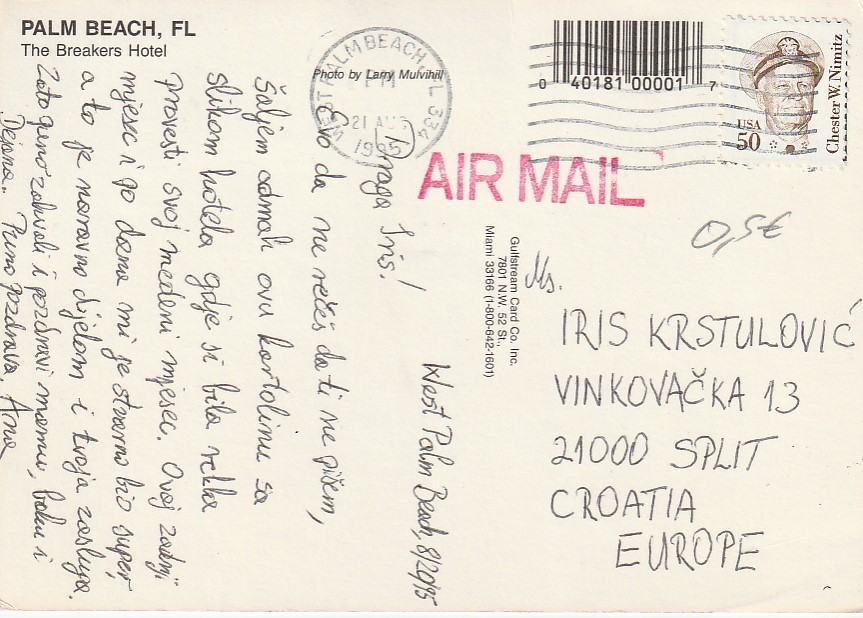 PALM BEACH, FL
The Breakers Hotel
Photo by Larry Mulvihill
WEST PALM BEACH, FL 334
PM
21 AUG
1995
0 40181 00001 7
USA
50
Chester W. Nimitz
AIR MAIL
0,5€
Gulfstream Card Co. Inc.
7801 N.W. 52 St.,
Miami 33166 (1-800-642-1601)
West Palm Beach, 8/20/95
Draga Iris!
Evo da ne rečeš da ti ne pišem,
šaljem odmah ovu kartolinu sa
slikom hotela gdje si bila rekla
provesti svoj medeni mjesec. Ovaj zadnji
mjesec i po dana mi je stvarno bio super,
a to je naravno dijelom i tvoja zasluga.
Zato puno zahvali i pozdravi mamu, baku i
Dejana. Puno pozdrava, Ana
Ms.
IRIS KRSTULOVIĆ
VINKOVAČKA 13
21000 SPLIT
CROATIA
EUROPE